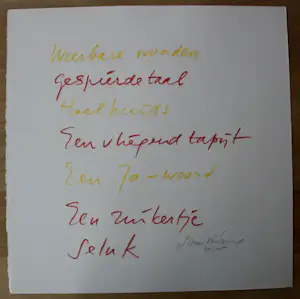 Weerbare woorden
gespierde taal
Een vliegend tapijt
Een Ja-woord
Een suikertje
geluk